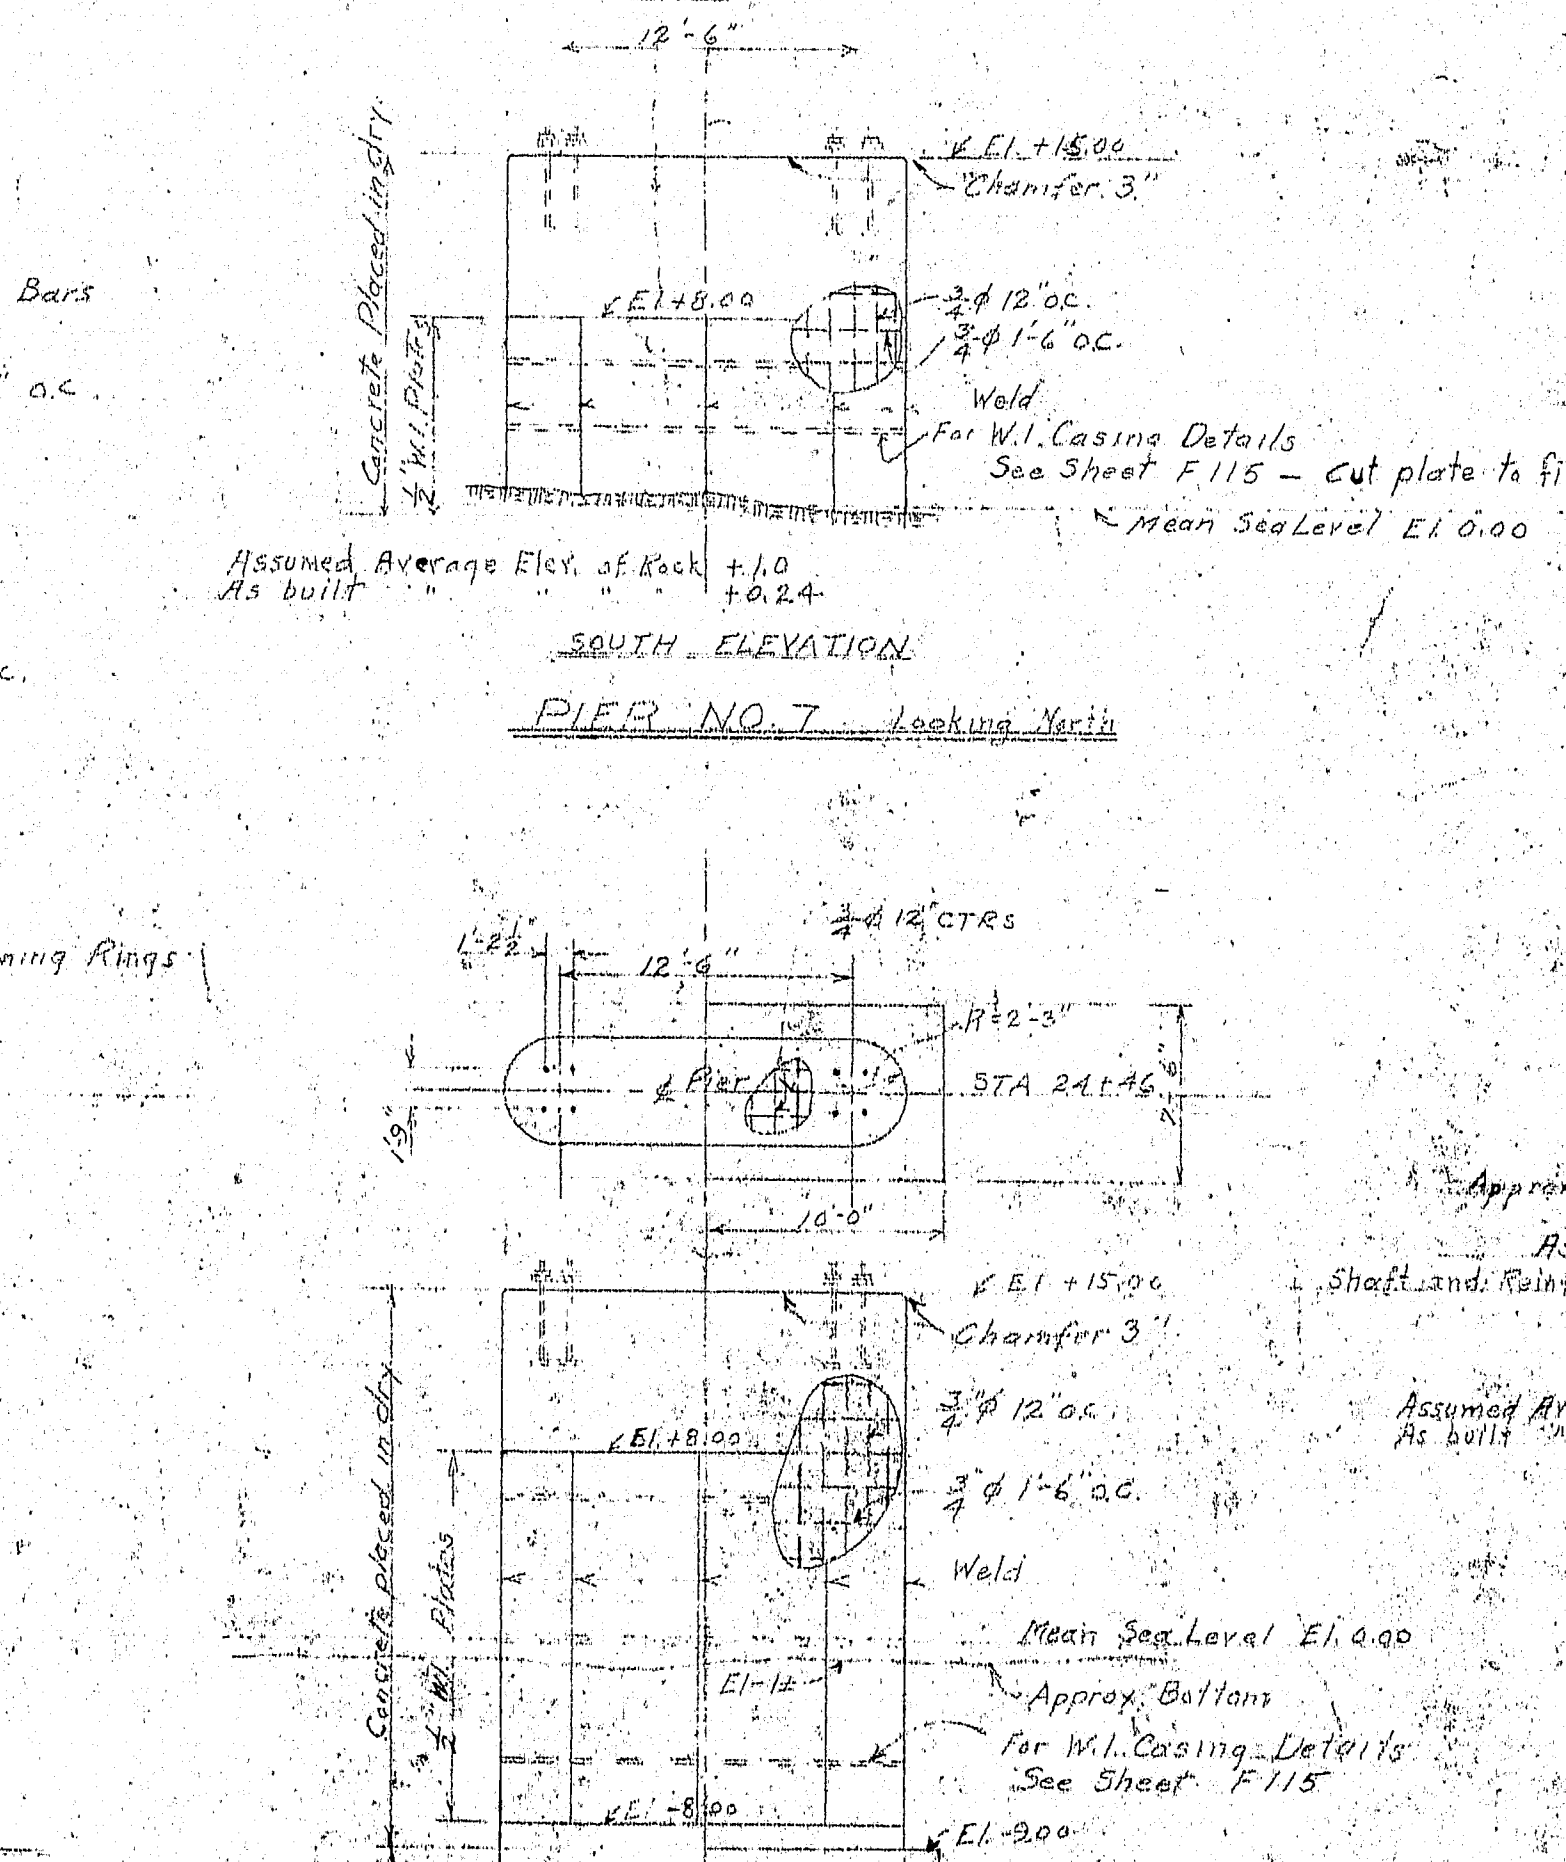 12'-6"
El. +15.00
Chamfer 3"
Concrete Placed in dry.
1/2" W.I. Plates
Bars
El. +8.00
3/4 φ 12" o.c.
3/4 φ 1'-6" o.c.
" o.c.
Weld
For W.I. Casing Details
See Sheet F 115 - Cut plate to fi
Mean Sea Level El. 0.00
Assumed Average Elev. of Rock +1.0
As built " " " " +0.24
SOUTH ELEVATION
c.
PIER NO. 7 Looking North
3/4 φ 12" CTRS
1'-2 1/2"
12'-6"
ning Rings
R=2'-3"
℄ Pier
STA 24+46
7'-6"
1'9"
10'-0"
Approx
As
Shaft and Rein
El. +15.00
Chamfer 3"
3/4" φ 12" o.c.
Assumed Av
As built "
El. +8.00
3/4" φ 1'-6" o.c.
Concrete placed in dry
1/2" W.I. Plates
Weld
Mean Sea Level El. 0.00
El-1±
Approx. Bottom
For W.I. Casing Details
See Sheet F 115
El -8.00
El. -9.00